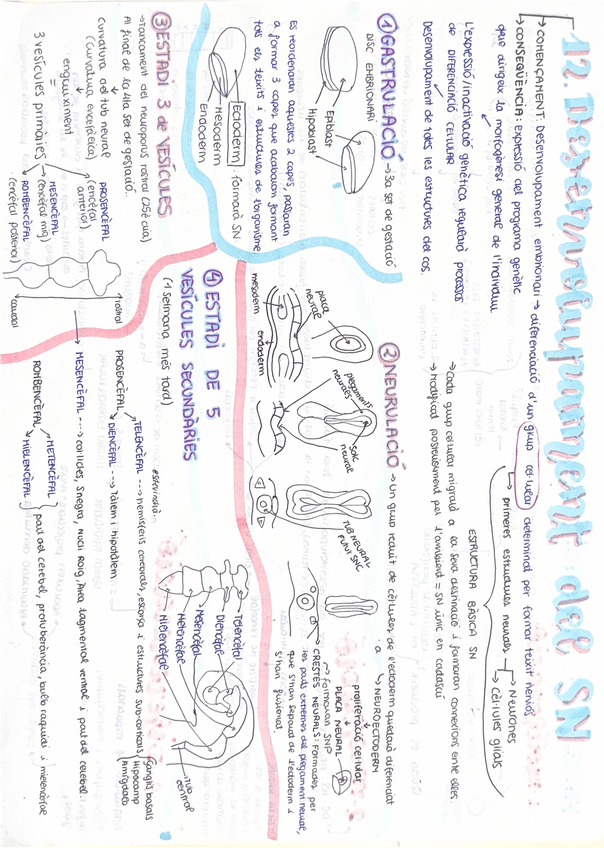 12. Desenvolupament del SN
→ COMENÇAMENT: Desenvolupament embrionari → diferenciació d'un grup cel·lular determinat per formar teixit nerviós
→ CONSEQÜÈNCIA: expressió del programa genètic
que dirigeix la morfogènesi general de l'individu
L'expressió/inactivació genètica regularà processos
de DIFERENCIACIÓ CEL·LULAR
Desenvolupament de totes les estructures del cos.
primeres estructures neurals
→ Neurones
→ Cèl·lules glials
ESTRUCTURA BÀSICA SN
→ cada grup cel·lular migrarà a la seva destinació i formaran connexions entre elles
→ Modificat posteriorment per l'ambient = SN únic en cadascú
① GASTRULACIÓ → 3a set de gestació
DISC EMBRIONARI
Epiblast
Hipoblast
Es reordenaran aquestes 2 capes, passaran
a formar 3 capes que acabaran formant
tots els teixits i estructures de l'organisme
Ectoderm → formarà SN
Mesoderm
Endoderm
② NEURULACIÓ → Un grup reduït de cèl·lules de l'ectoderm quedarà diferenciat
a → NEUROECTODERM
proliferació cel·lular
PLACA NEURAL
placa neural
mesoderm
endoderm
plegaments neurals
solc neural
TUB NEURAL
FUTUR SNC
→ CRESTES NEURALS: Formades per
↪ formaran SNP
les parts extremes del plegament neural,
que s'han separat de l'ectoderm i
s'han fusionat.
③ ESTADI 3 de VESÍCULES
→ Tancament del neuroporus rostral (25è dia)
Al final de la 4ta set de gestació.
curvatura del tub neural
(curvatura encefàlica)
engruiximent
=
3 vesícules primàries
PROSENCÈFAL
(encèfal anterior)
MESENCÈFAL
(encèfal mig)
ROMBENCÈFAL
(encèfal posterior)
rostral
caudal
④ ESTADI DE 5
VESÍCULES SECUNDÀRIES
(1 setmana més tard)
*esdevindrà...
PROSENCÈFAL
TELENCÈFAL ---> hemisferis cerebrals, escorça i estructures sub-corticals
Ganglis basals
Hipocamp
Amígdala
DIENCÈFAL ---> Tàlem i hipotàlem
MESENCÈFAL ---> col·licles, S negra, nucli Roig, Àrea tegmental ventral i part del cerebel
ROMBENCÈFAL
METENCÈFAL
MIELENCÈFAL
part del cerebel, protuberància, bulb raquidi i mielencèfal
Telencèfal
Diencèfal
Mesencèfal
Metencèfal
Mielencèfal
Tub neural